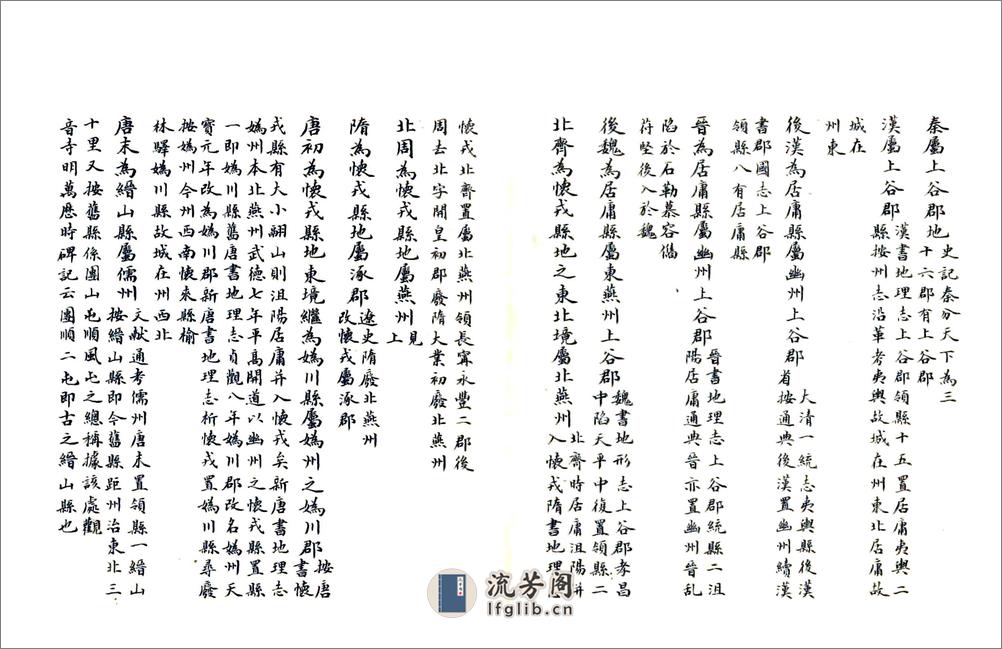 秦屬上谷郡地
史記秦分天下為三
十六郡有上谷郡
漢屬上谷郡
漢書地理志上谷郡領縣十五置居庸夷輿二
縣按州志沿革考夷輿故城在州東北居庸故
城在
州東
後漢為居庸縣屬幽州上谷郡
大清一統志夷輿縣後漢
省按通典後漢置幽州續漢
書郡國志上谷郡
領縣八有居庸縣
晉為居庸縣屬幽州上谷郡
晉書地理志上谷郡統縣二沮
陽居庸通典晉亦置幽州晉亂
陷於石勒慕容儁
苻堅後入於魏
後魏為居庸縣屬東燕州上谷郡
魏書地形志上谷郡孝昌
中陷天平中復置領縣二
北齊為懷戎縣地之東北境屬北燕州
北齊時居庸沮陽并
入懷戎隋書地理志
懷戎北齊置屬北燕州領長寧永豐二郡後
周去北字開皇初郡廢隋大業初廢北燕州
北周為懷戎縣地屬燕州
見
上
隋為懷戎縣地屬涿郡
遼史隋廢北燕州
改懷戎屬涿郡
唐初為懷戎縣地東境繼為媯川縣屬媯州之媯川郡
按唐
書懷
戎縣有大小翮山則沮陽居庸并入懷戎矣新唐書地理志
媯州本北燕州武德七年平高開道以幽州之懷戎縣置縣
一即媯川縣舊唐書地理志貞觀八年媯川郡改名媯州天
寶元年改為媯川郡新唐書地理志析懷戎置媯川縣尋廢
按媯州今州西南懷來縣榆
林驛媯川縣故城在州西北
唐末為縉山縣屬儒州
文献通考儒州唐末置領縣一縉山
按縉山縣即今舊縣距州治東北三
十里又按舊縣係團山屯順風屯之總稱據該處觀
音寺明萬歷時碑記云團順二屯即古之縉山縣也
流芳阁
lfglib.cn